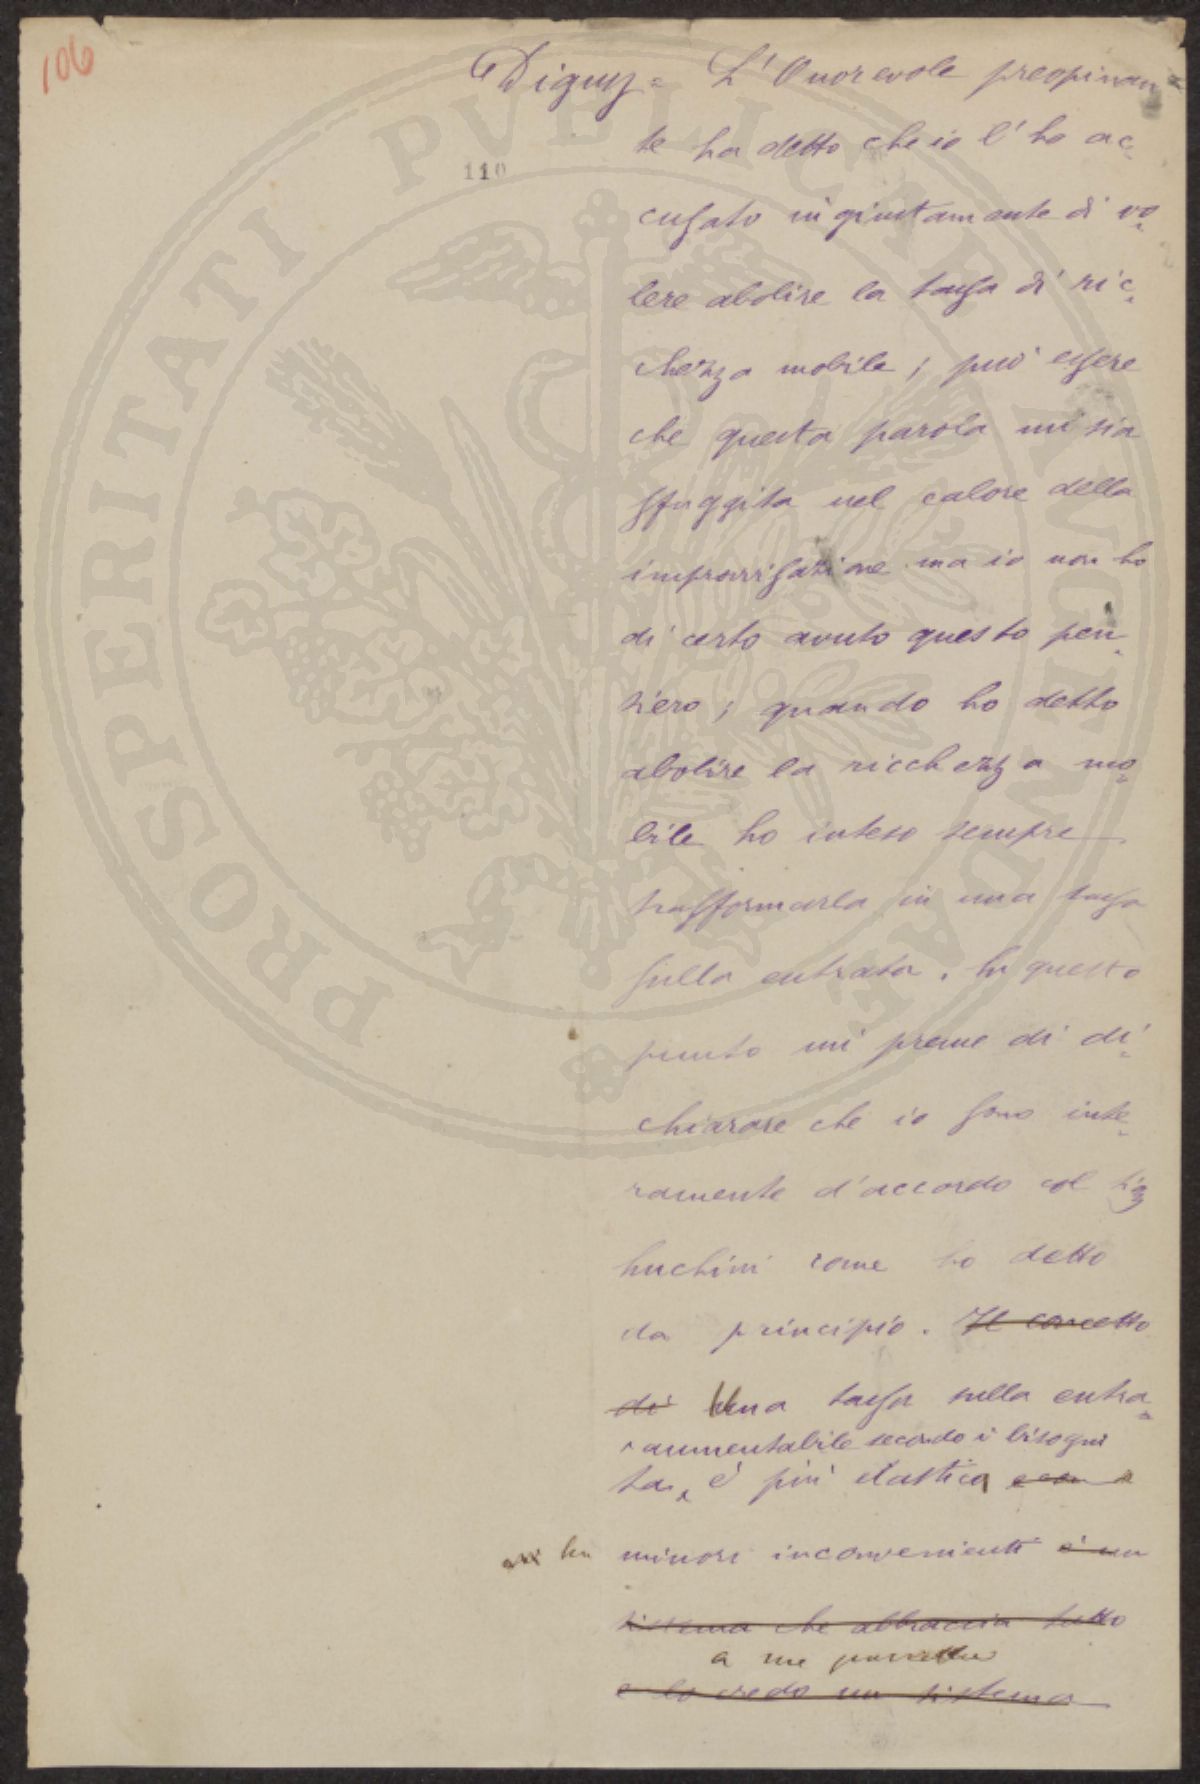 106
Digny = L'Onorevole preopinan
te ha detto che io l'ho ac-
110
cusato ingiustamente di vo-
lere abolire la tassa di ric-
chezza mobile; può essere
che questa parola mi sia
sfuggita nel calore della
improvvisazione ma io non ho
di certo avuto questo pen-
siero; quando ho detto
abolire la ricchezza mo-
bile ho inteso sempre
trasformarla in una tassa
sulla entrata. In questo
punto mi preme di di-
chiarare che io sono inte-
ramente d'accordo col sig
Luchini come ho detto
da principio. Il concetto
di Una tassa sulla entra-
aumentabile secondo i bisogni
ta, è più elastica e con
ha minori inconvenienti è un
sistema che abbraccia tutto
a me
e lo credo un sistema
PROSPERITATI PVBLICAE AVGENDAE